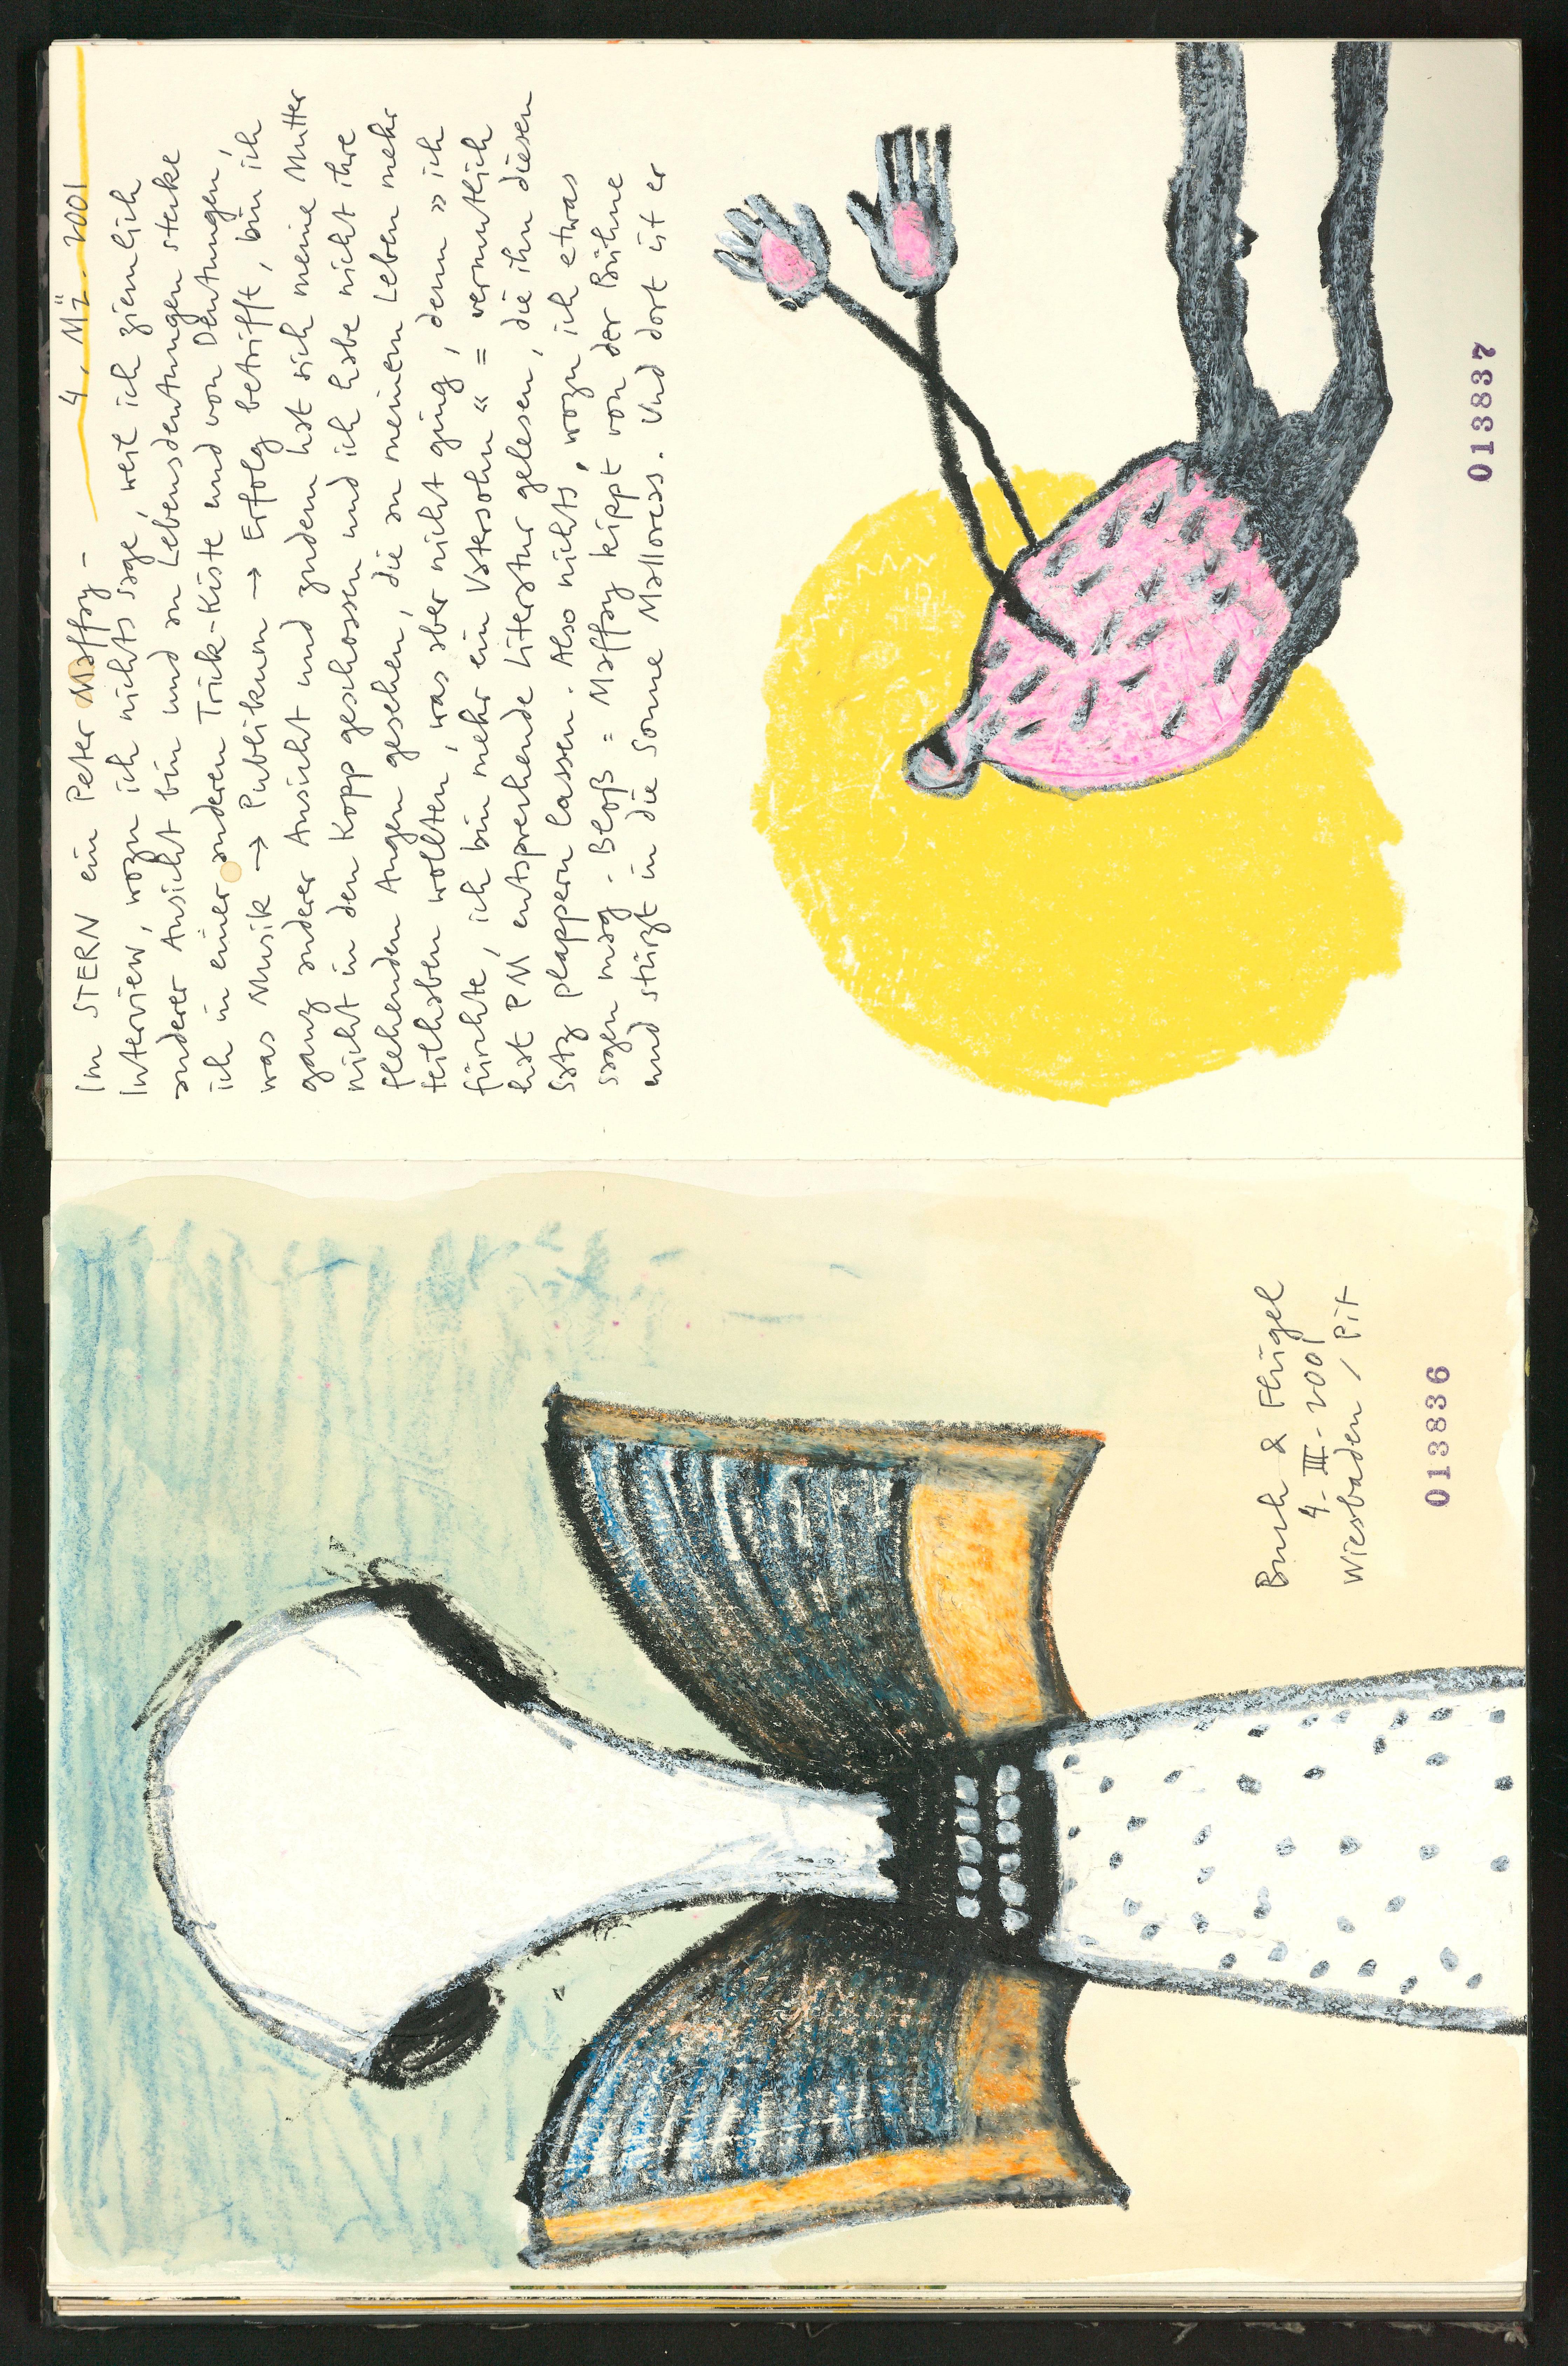 Buch & Flügel
4-III-2001
Wiesbaden / Pit
013836
Im STERN ein Peter Maffay - 4. Mä. 2001
Interview, wozu ich nichts sage, weil ich ziemlich
anderer Ansicht bin und an Lebensdeutungen stecke
ich in einer anderen Trick-Kiste und von Deutungen,
was Musik → Publikum → Erfolg betrifft, bin ich
ganz anderer Ansicht und zudem hat sich meine Mutter
nicht in den Kopp geschossen und ich habe nicht ihre
flehenden Augen gesehen, die an meinem Leben mehr
teilhaben wollten, was aber nicht ging, denn » ich
fürchte, ich bin mehr ein Vatersohn « = vermutlich
hat PM entsprechende Literatur gelesen, die ihn diesen
Satz plappern lassen. Also nichts, wozu ich etwas
sagen mag. Bloß = Maffay kippt von der Bühne
und stürzt in die Sonne Mallorcas. Und dort ist er
013837